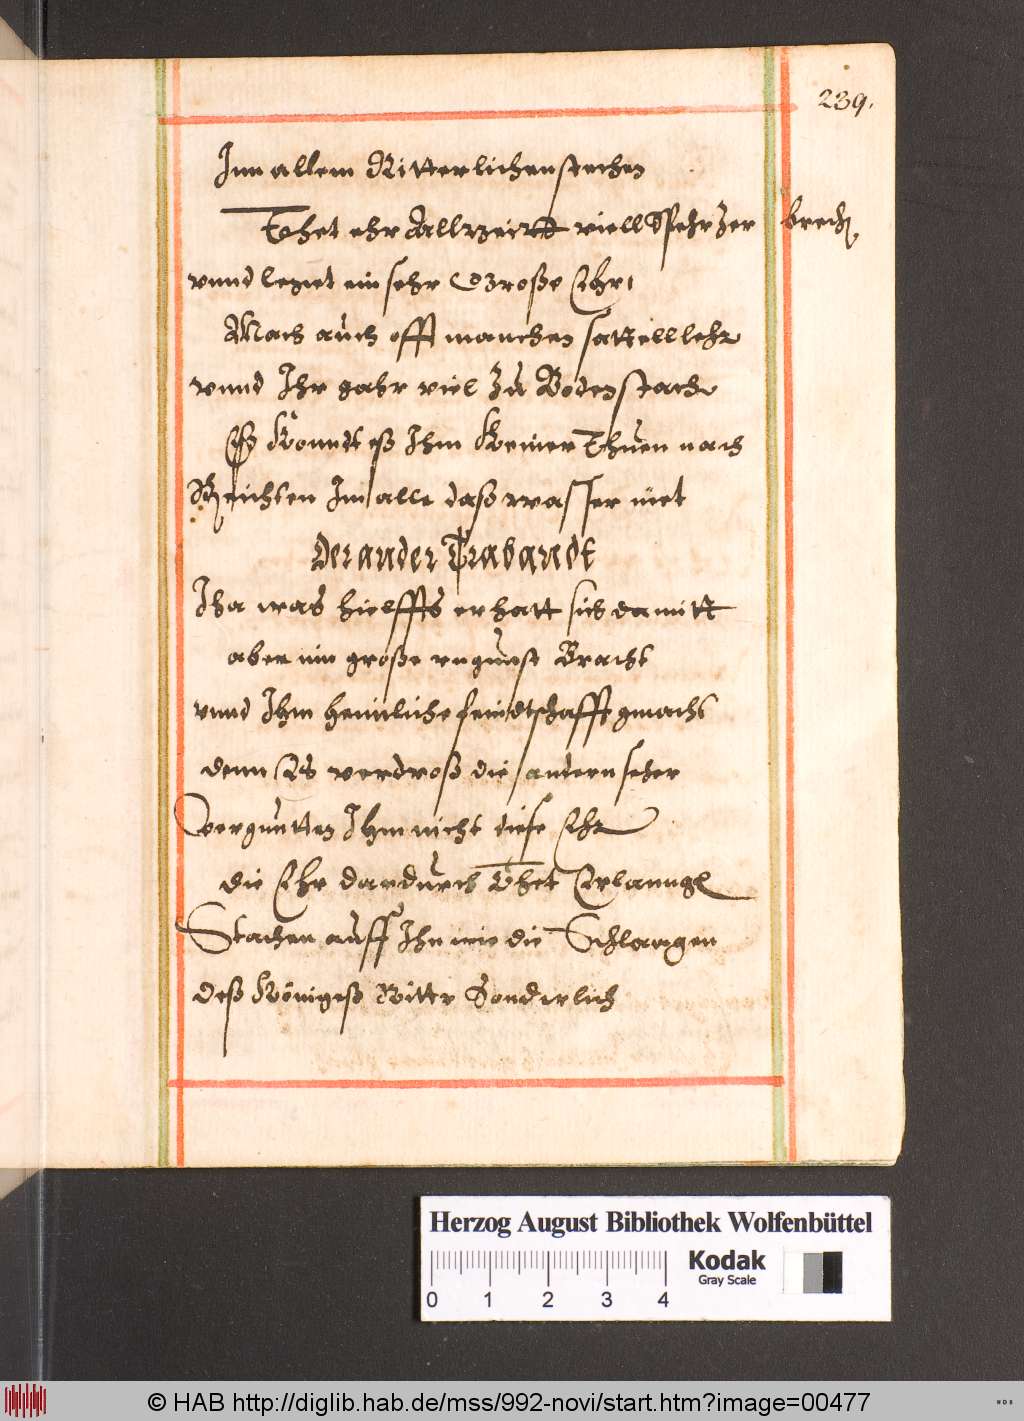 239.
Inn allem Ritterlichen stechen
Thet ehr Allzeitt viell Spehr Zer brechen
vnnd leget ein sehr Große Ehr
Mach auch offt manchen sattell lehr
vnnd Ihr gahr viel Zu Boden stach
Es Konndt eß Ihm Keiner Thuen nach
Reichten Im alle daß wasser niet
Der ander Trabandt
Iha was hielffts er hatt sich damitt
aber ein große vngunst Bracht
vnnd Ihm heimliche feindtschafft gmacht
denn Es verdroß die andern seher
vergunten Ihm nicht diese Ehr
die Ehr dardurch Thet Erlanngen
Stachen auff Ihn wie die Schlangen
deß Königeß Ritter Sonderlich
Herzog August Bibliothek Wolfenbüttel
Kodak
Gray Scale
0 1 2 3 4
© HAB http://diglib.hab.de/mss/992-novi/start.htm?image=00477